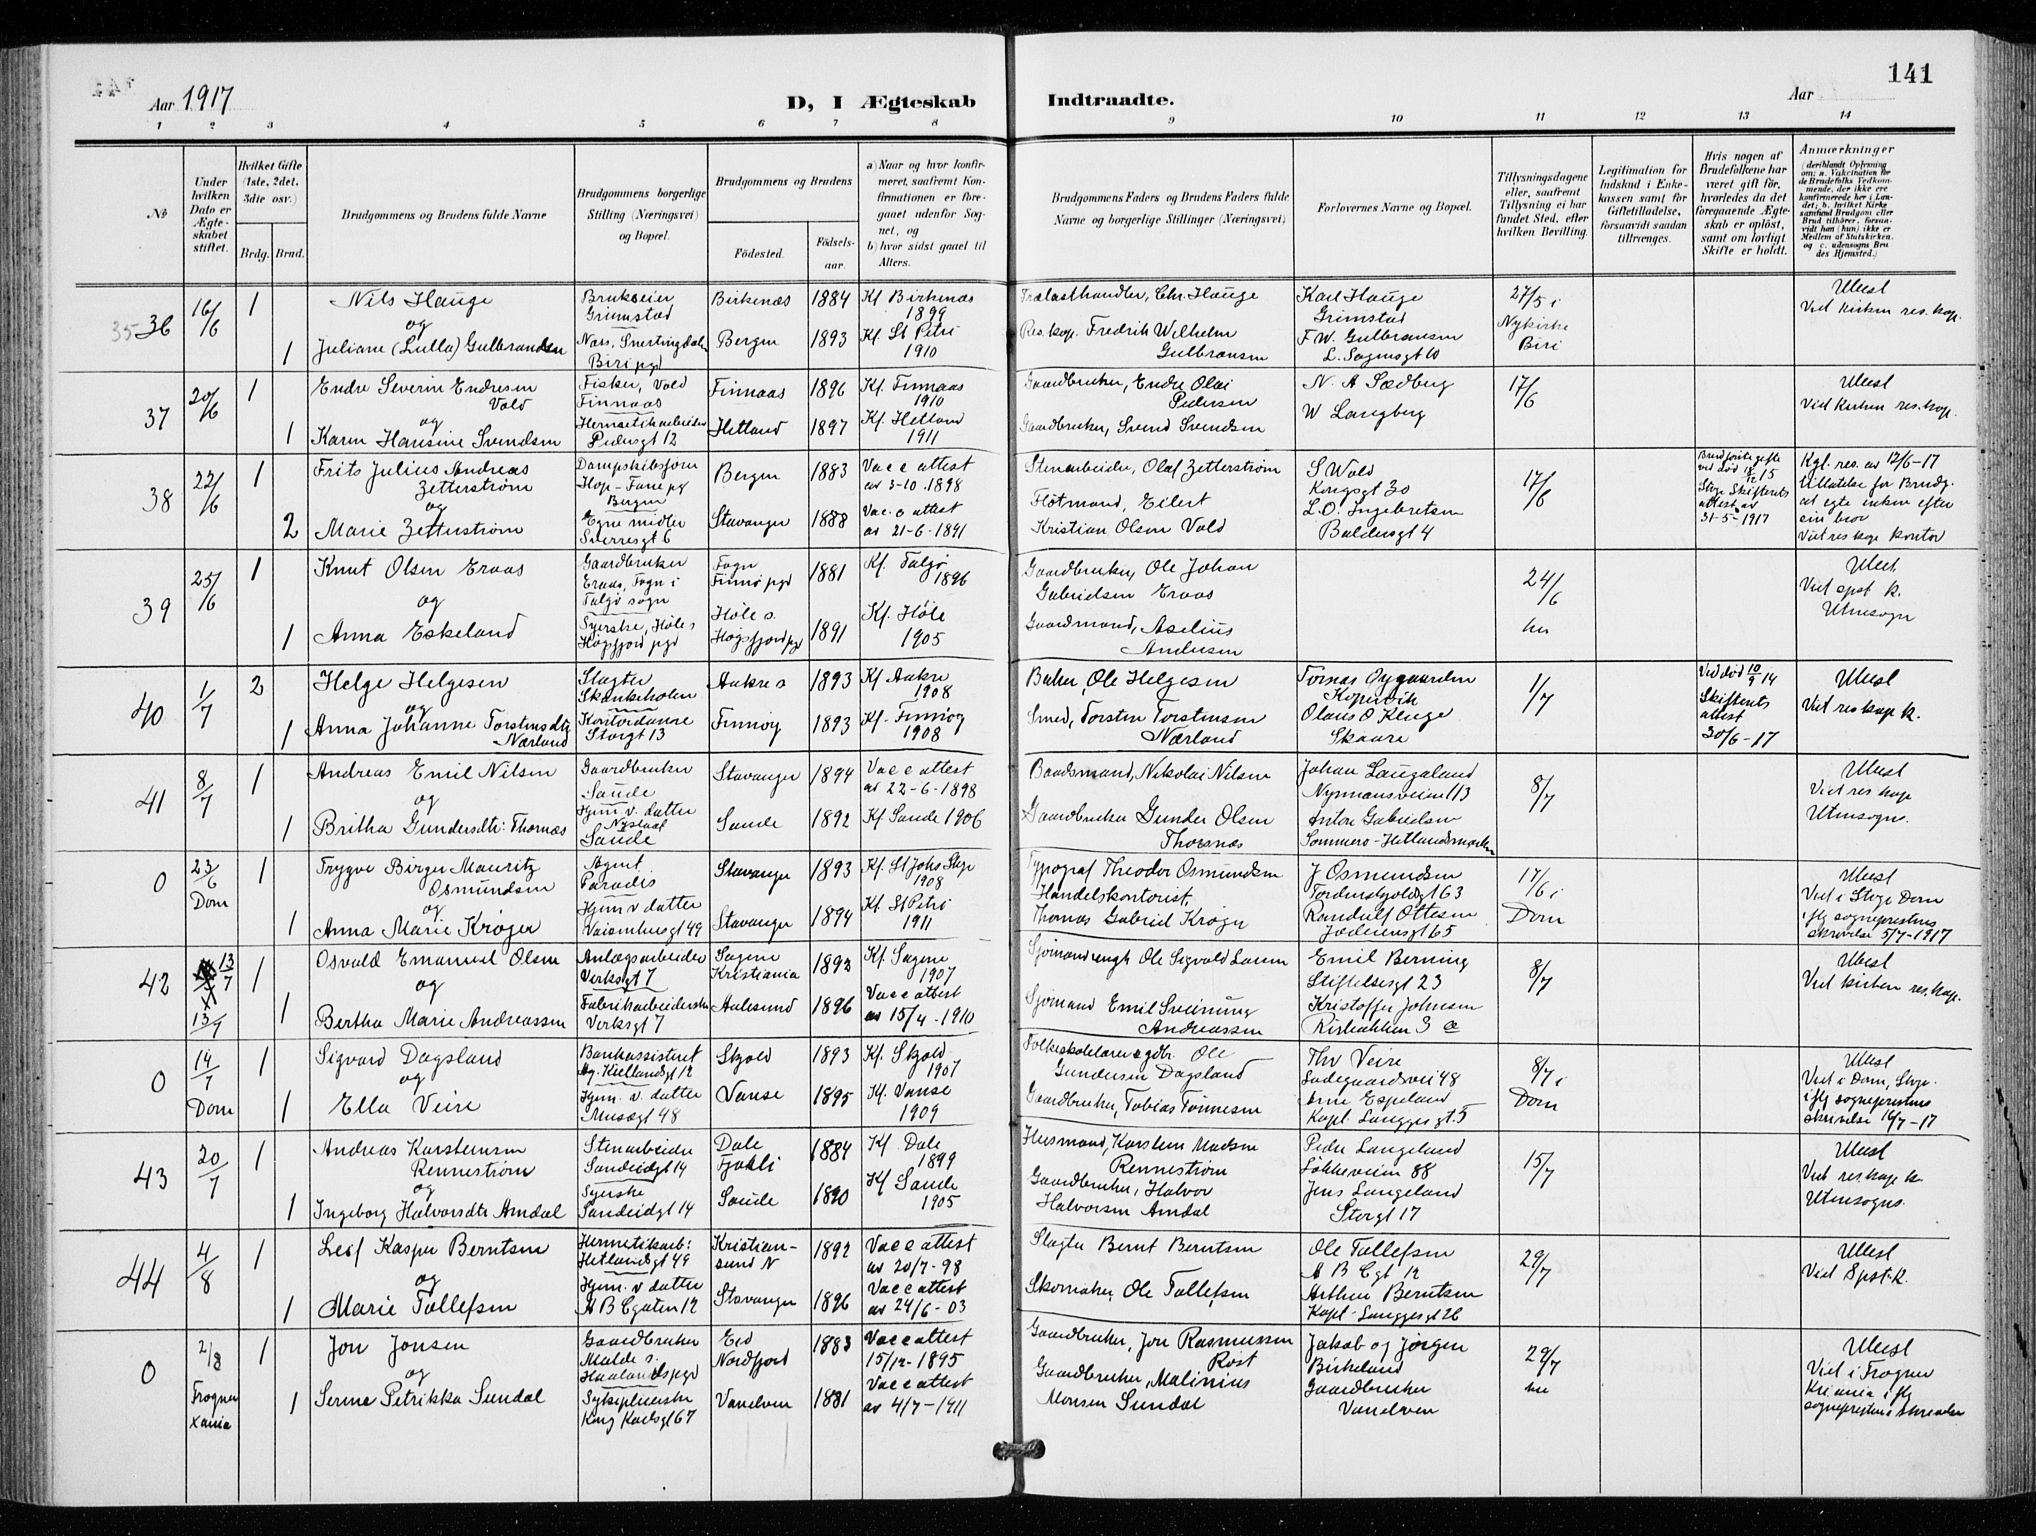 141
Aar 1917
D, I Ægteskab
Indtraadte.
Aar
1 2 3 4 5 6 7 8 9 10 11 12 13 14
No
Under hvilken Dato er Ægteskabet stiftet.
Hvilket Gifte (1ste, 2det, 3die osv.)
Brdg. Brud.
Brudgommens og Brudens fulde Navne
Brudgommens borgerlige Stilling (Næringsvei) og Bopæl.
Brudgommens og Brudens
Födested.
Födsels-aar.
a) Naar og hvor konfirmeret, saafremt Konfirmationen er foregaaet udenfor Sognet, og
b) hvor sidst gaaet til Alters.
Brudgommens Faders og Brudens Faders fulde Navne og borgerlige Stillinger (Næringsvei)
Forlovernes Navne og Bopæl.
Tillysningsdagene eller, saafremt Tillysning ei har fundet Sted, efter hvilken Bevilling.
Legitimation for Indskud i Enkekassen samt for Giftetilladelse, forsaavidt saadan tiltrænges.
Hvis nogen af Brudefolkene har været gift för, hvorledes da det foregaaende Ægteskab er oplöst, samt om lovligt Skifte er holdt.
Anmærkninger
(deriblandt Oplysning om: a. Vakcination for de Brudefolks Vedkommende, der ikke ere konfirmerede her i Landet; b. hvilket Kirkesamfund Brudgom eller Brud tilhörer, forsaavidt han (hun) ikke er Medlem af Statskirken, og c. udensogns Brudes Hjemsted.)
35 36
16/6
1
Nils Hauge
og
1
Juliane (Lulla) Gulbrandsen
Brukseier
Grimstad
Næss, Snertingdalen
Biri pgd
Birkenæs 1884
Bergen 1893
Kf Birkenæs
1899
Kf. St Petri
1910
Trælasthandler, Chr. Hauge
Res. kap. Fredrik Wilhelm
Gulbransen
Karl Hauge
Grimstad
F W. Gulbransen
L. Sagmsgt 10
27/5 i
Nykirke
Biri
Ulæst
Viet kirken res. kap.
37
20/6
1
Endre Severin Endresen
Vold
og
1
Karen Hansine Svendsen
Fisker, Vold
Finnaas
Hermetikarbeider
Pedersgt 12
Finnaas 1896
Hetland 1897
Kf. Finnaas
1910
Kf. Hetland
1911
Gaardbruker, Endre Olai
Pedersen
Gaardbruker, Svend Svendsen
N. A Sædberg
W Langberg
17/6
Ulæst
Viet kirken res. kap.
38
22/6
1
Frits Julius Andreas
Zetterström
og
2
Marie Zetterström
Dampskibsfører
Hop - Fane pg
Bergen
Egne midler
Sverresgt 6
Bergen 1883
Stavanger 1888
Vacc attest
av 3-10.1898
Vacc attest
av 21-6-1891
Stenarbeider, Olaf Zetterström
Fløtmand, Eilert
Kristian Olsen Vold
S Wold
Kongsgt 30
L. O. Ingebretsen
Baldersgt 4
17/6
Stvgr Skifterets
attest av
31-5-1917
Kgl. res. av 12/6-17
tillatelse for Brudg.
at egte enken efter
sin bror
Viet res kap kontor
39
25/6
1
Knut Olsen Eraas
og
1
Anna Eskeland
Gaardbruker
Eraas, Fogn i
Talgø sogn
Syerske, Høle s
Høgsfjord pgd
Fogn
Finnø pgd 1881
Høle s.
Høgsfjord pgd 1891
Kf. Talgø
1896
Kf. Høle
1905
Gaardbruker, Ole Johan
Gabrielsen Eraas
Gaardmand, Aselius
Andersen
24/6
her
Ulæst
Viet spst k.
Utensogn
40
1/7
2
Helge Helgesen
og
1
Anna Johanne Torstensdtr
Nærland
Slagter
Skankeholen
Kontordame
Storgt 13
Aakre s 1893
Finnøy 1893
Kf Aakre
1908
Kf. Finnøy
1908
Baker, Ole Helgesen
Smed, Torsten Torstensen
Nærland
Tornas Øygaarden
Kopervik
Olaus O Klenge
Skaare
1/7
Ved død 10/9 14
Skifterets
attest
30/6-17
Ulæst
Viet res kap k.
41
8/7
1
Andreas Emil Nilsen
og
1
Britha Gundersdtr. Thornæs
Gaardbruker
Saude
Hjem v. datter
Saude
Stavanger 1894
Saude 1892
Vacc attest
av 22-6-1898
Kf Saude 1906
Baadsmand, Nikolai Nilsen
Gaardbruker Gunder Olsen
Thorsnæs
Johan Laugaland
Nymansveien 113
Anton Gabrielsen
Sommero-Hetlandsmarken
8/7
Ulæst
Viet res kap
Utensogns.
0
23/6
Dom
1
Trygve Birger Mauritz
Osmundsen
og
1
Anna Marie Krøger
Agent
Paradis
Hjem v datter
Vaisenhusgt 49
Stavanger 1893
Stavanger 1894
Kf. St Johs Stvgr
1908
Kf. St Petri
1911
Typograf Theodor Osmundsen
Handelskontorist,
Thomas Gabriel Krøger
J Osmundsen
Tordenskjoldsgt 63
Randulf Ottesen
Jæderensgt 65
17/6 i
Dom
Ulæst
Viet i Stvgr Dom
iflg sogneprestens
skrivelse 5/7-1917
42
13/7
13/7
1
Osvald Emanuel Olsen
og
1
Bertha Marie Andreassen
Anlægsarbeider
Verksgt 7
Fabrikarbeiderske
Verksgt 7
Sagene
Kristiania 1892
Aalesund 1896
Kf. Sagene
1907
Vacc attest
av 15/4-1910
Ole Sigvald Larsen
Sjømand Emil Sveinung
Andreassen
Emil Berning
Stiftelsesgt 23
Kristoffer Johnsen
Kirkebakken 3 a
8/7
Ulæst
Viet kirken res. kap.
0
14/7
Dom
1
Sigvard Dagsland
og
1
Ella Veire
Bankassistent
Ag. Kiellandsgt 12
Hjem. v. datter
Musægt 48
Skjold 1893
Vanse 1895
Kf. Skjold
1907
Kf. Vanse
1909
Folkeskolelærer & gdbr. Ole
Gundersen Dagsland
Gaardbruker, Tobias Tønnesen
Thv Veire
Ladegaardsvei 48
Arne Espeland
Kapl. Langgesgt 5
8/7 i
Dom
Ulæst
Viet i Dom, Stvgr.
iflg sogneprestens
skrivelse 16/7-17
43
20/7
1
Andreas Karstensen
Rennestrøm
og
1
Ingeborg Halvorsdtr Amdal
Stenarbeider
Sandeidgt 14
Syerske
Sandeidgt 14
Dale
Fjaler 1884
Saude 1890
Kf. Dale
1899
Kf Saude
1905
Husmand, Karsten Madsen
Rennestrøm
Gaardbruker, Halvor
Halvorsen Amdal
Peder Langeland
Løkkeveien 88
Jens Langeland
Storgt 17
15/7
Ulæst
Viet res. kap k.
Utensogns.
44
4/8
1
Leif Kasper Berntsen
og
1
Marie Tollefsen
Hermetikarb.
Hetlandsgt 49
Hjem. v datter
A B Cgaten 12
Kristian-
sund N 1892
Stavanger 1896
Vacc attest
av 20/7-98
Vacc attest
av 24/6-03
Slagter Bernt Berntsen
Skomaker, Ole Tollefsen
Ole Tollefsen
A B Cgt 12
Arthur Berntsen
Kapl-Langgesgt 26
29/7
Ulæst
Viet Spst. K.
0
2/8
Frogner
Xania
1
Jon Jonsen
og
1
Serina Petrikka Sundal
Gaardbruker
Malde s.
Haalands pgd
Sykepleierske
Kong Karlsgt 67
Eid
Nordfjord 1883
Vanelven 1881
Vacc attest
15/12-1895
Vacc attest
av 4/7-1911
Gaardbruker, Jon Rasmussen
Røst
Gaardbruker, Malinius
Monsen Sundal
Jakob og Jørgen
Birkeland
Gaardbruker
Vanelven
29/7
her
Ulæst
Viet i Frogner
Kriania iflg
sogneprestens skrivelse